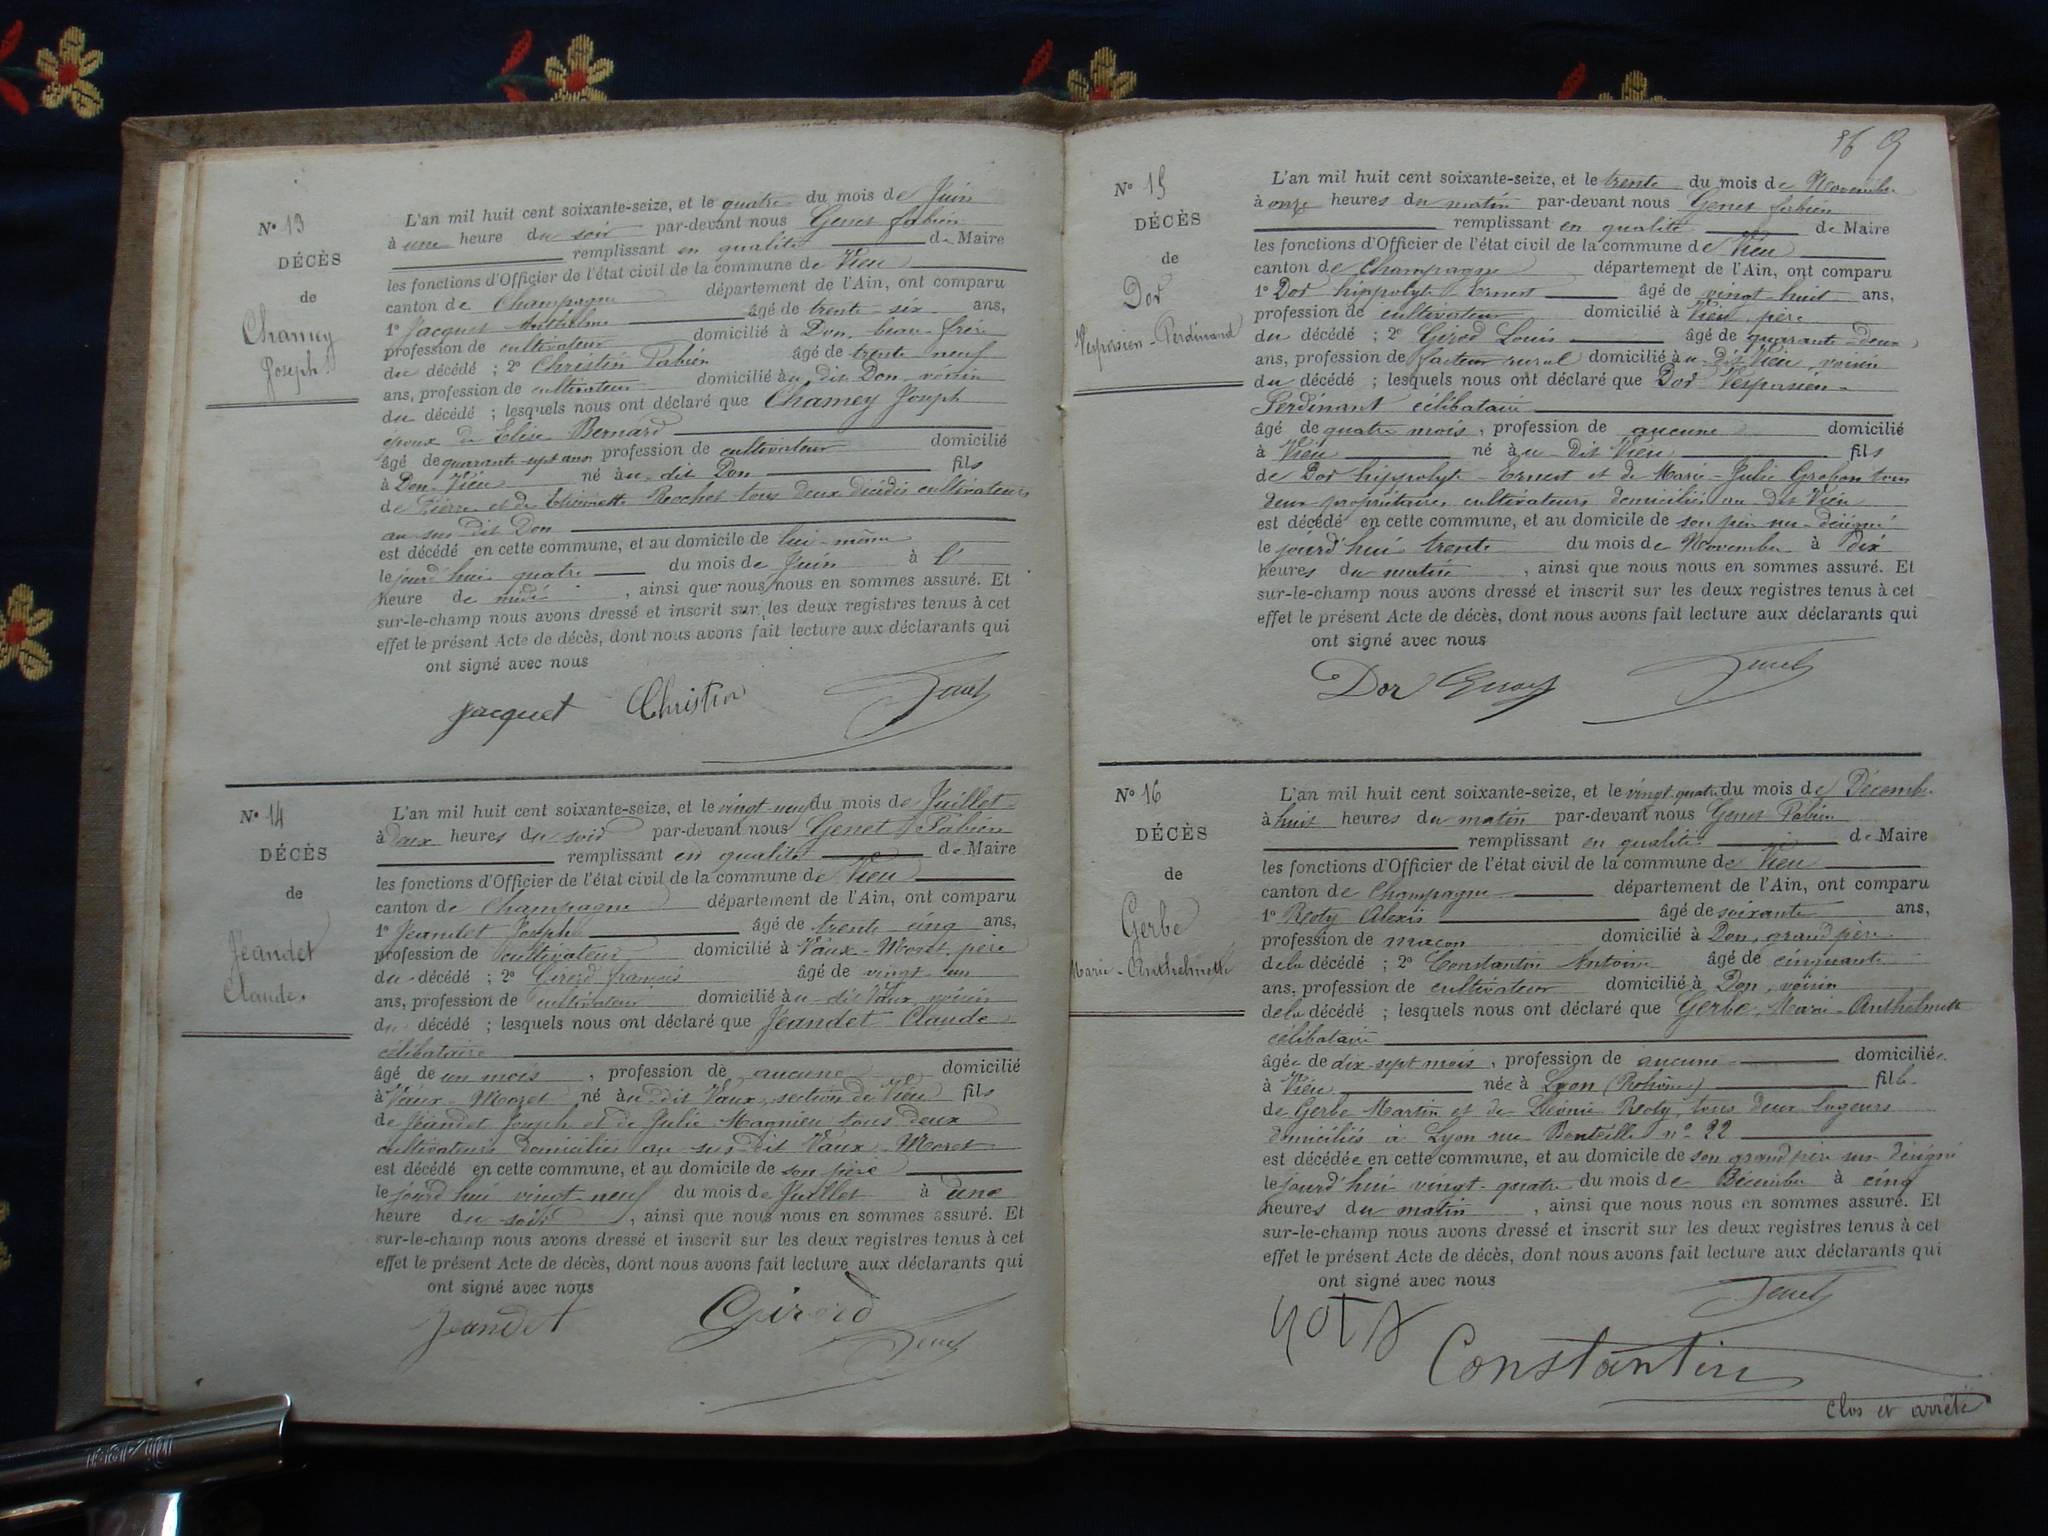 N° 13
DÉCÈS
de
Chamey
Joseph
L'an mil huit cent soixante-seize, et le quatre du mois de Juin
à une heure du soir par-devant nous Genet fabien
remplissant en qualité de Maire
les fonctions d'Officier de l'état civil de la commune de Vieu
canton de Champagne département de l'Ain, ont comparu
1° Jacquet Anthelme âgé de trente-six ans,
profession de cultivateur domicilié à Don, beau-frère
du décédé ; 2° Christin Fabien âgé de trente-neuf
ans, profession de cultivateur domicilié au dit Don voisin
du décédé ; lesquels nous ont déclaré que Chamey Joseph
époux de Elise Bernard
âgé de quarante-sept ans profession de cultivateur domicilié
à Don-Vieu né au dit Don fils
de Pierre et de Etiennette Rochet tous deux décédés cultivateurs
au sus-dit Don
est décédé en cette commune, et au domicile de lui-même
le jourd'hui quatre du mois de Juin à l'
heure de midi, ainsi que nous nous en sommes assuré. Et
sur-le-champ nous avons dressé et inscrit sur les deux registres tenus à cet
effet le présent Acte de décès, dont nous avons fait lecture aux déclarants qui
ont signé avec nous
Jacquet Christin Genet
N° 14
DÉCÈS
de
Jeandet
Claude.
L'an mil huit cent soixante-seize, et le vingt-neuf du mois de Juillet
à deux heures du soir par-devant nous Genet Fabien
remplissant en qualité de Maire
les fonctions d'Officier de l'état civil de la commune de Vieu
canton de Champagne département de l'Ain, ont comparu
1° Jeandet Joseph âgé de trente-cinq ans,
profession de cultivateur domicilié à Vaux-Moret père
du décédé ; 2° Girerd françois âgé de vingt-un
ans, profession de cultivateur domicilié au-dit Vaux, voisin
du décédé ; lesquels nous ont déclaré que Jeandet Claude
célibataire
âgé de un mois, profession de aucune domicilié
à Vaux-Moret né au dit Vaux, section de Vieu fils
de Jeandet Joseph et de Julie Magnieu tous deux
cultivateurs domiciliés au sus dit Vaux-Moret
est décédé en cette commune, et au domicile de son père
le jourd'hui vingt-neuf du mois de Juillet à une
heure du soir, ainsi que nous nous en sommes assuré. Et
sur-le-champ nous avons dressé et inscrit sur les deux registres tenus à cet
effet le présent Acte de décès, dont nous avons fait lecture aux déclarants qui
ont signé avec nous
Jeandet Girerd Genet
86 9
N° 15
DÉCÈS
de
Dor
Vespasien-Ferdinand
L'an mil huit cent soixante-seize, et le trente du mois de Novembre
à onze heures du matin par-devant nous Genet fabien
remplissant en qualité de Maire
les fonctions d'Officier de l'état civil de la commune de Vieu
canton de Champagne département de l'Ain, ont comparu
1° Dor hippolyte-Ernest âgé de vingt-huit ans,
profession de cultivateur domicilié à Vieu, père
du décédé ; 2° Girod Louis âgé de quarante-deux
ans, profession de facteur rural domicilié au-dit Vieu, voisin
du décédé ; lesquels nous ont déclaré que Dor Vespasien-
Ferdinant célibataire
âgé de quatre mois, profession de aucune domicilié
à Vieu né au-dit Vieu fils
de Dor hippolyte-Ernest et de Marie-Julie Grobon tous
deux propriétaires cultivateurs domiciliés au dit Vieu
est décédé en cette commune, et au domicile de son père su-désigné
le jourd'hui trente du mois de Novembre à dix
heures du matin, ainsi que nous nous en sommes assuré. Et
sur-le-champ nous avons dressé et inscrit sur les deux registres tenus à cet
effet le présent Acte de décès, dont nous avons fait lecture aux déclarants qui
ont signé avec nous
Dor Genet
N° 16
DÉCÈS
de
Gerbe
Marie-Anthelmette
L'an mil huit cent soixante-seize, et le vingt-quatre du mois de Décembre
à huit heures du matin par-devant nous Genet Fabien
remplissant en qualité de Maire
les fonctions d'Officier de l'état civil de la commune de Vieu
canton de Champagne département de l'Ain, ont comparu
1° Reoty Alexis âgé de soixante ans,
profession de maçon domicilié à Don, grand père
de la décédé ; 2° Constantin Antoine âgé de cinquante
ans, profession de cultivateur domicilié à Don, voisin
de la décédé ; lesquels nous ont déclaré que Gerbe, Marie-Anthelmette
célibataire
âgée de dix-sept mois, profession de aucune domiciliée
à Vieu née à Lyon (Rohône) fille
de Gerbe Martin et de Léonie Reoty, tous deux logeurs
domiciliés à Lyon rue Bouteille n° 22
est décédée en cette commune, et au domicile de son grand père sus-désigné
le jourd'hui vingt-quatre du mois de Décembre à cinq
heures du matin, ainsi que nous nous en sommes assuré. Et
sur-le-champ nous avons dressé et inscrit sur les deux registres tenus à cet
effet le présent Acte de décès, dont nous avons fait lecture aux déclarants qui
ont signé avec nous
Genet
Constantin
Clos et arrêté